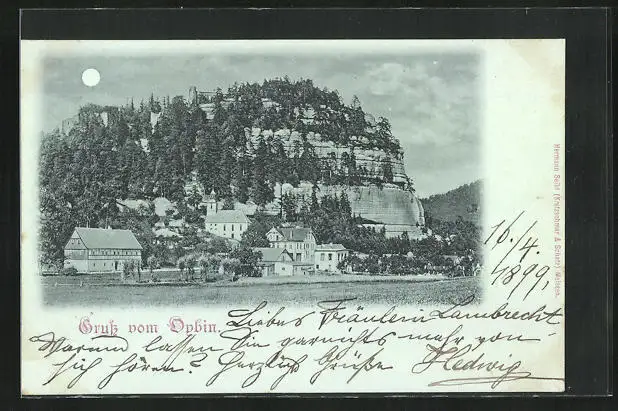 Gruß vom Oybin.
16/4.
1899.
Liebes Fräulein Lambrecht,
Warum lassen Sie garnichts mehr von
sich hören? Herzlich Grüße Hedwig
Hermann Seibt (Kratzschmar & Schatz) Meissen.